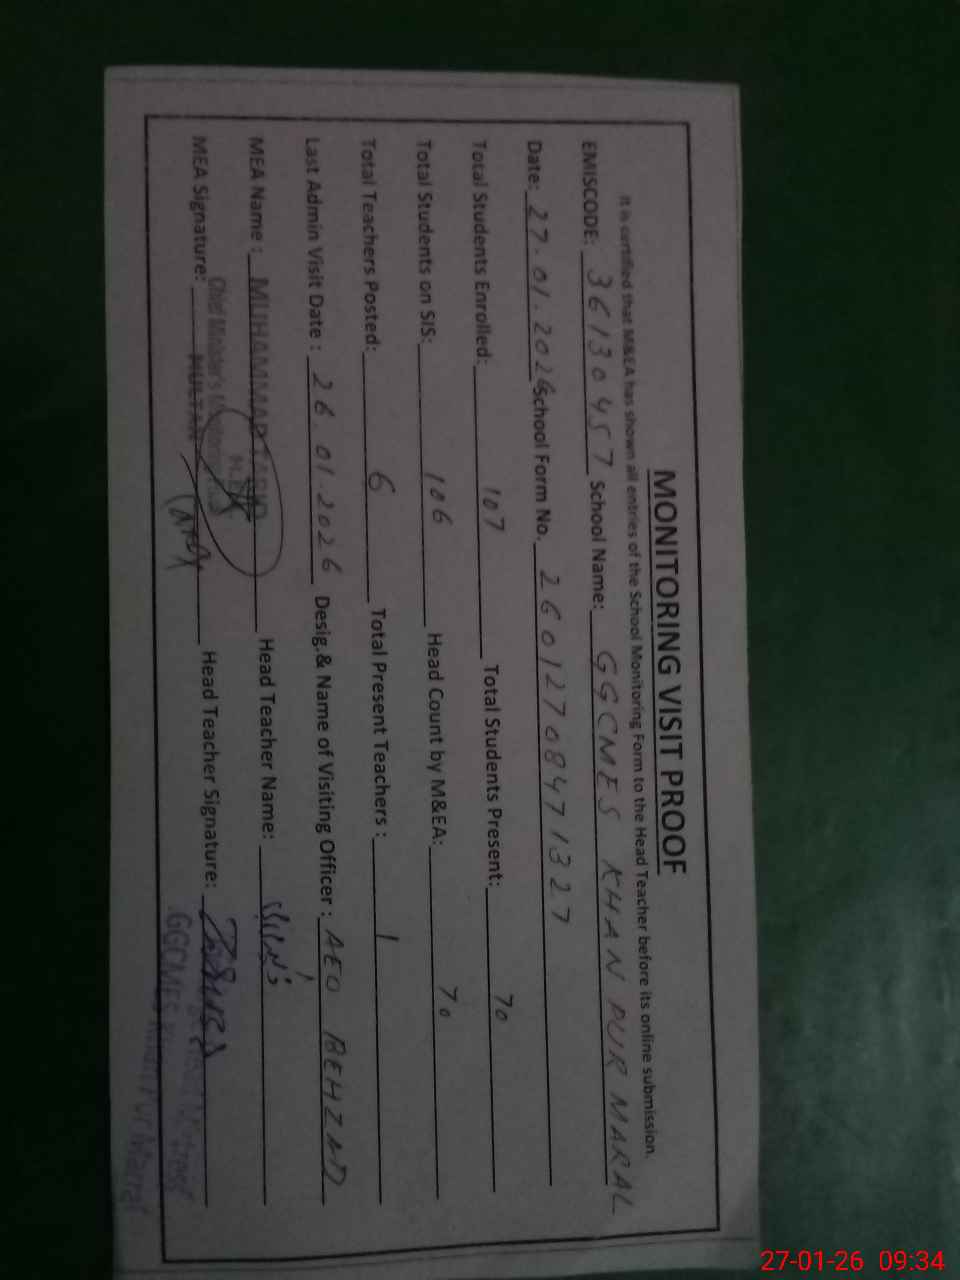 MONITORING VISIT PROOF
It is certified that M&EA has shown all entries of the School Monitoring Form to the Head Teacher before its online submission.
EMISCODE: 36130457 School Name: GGCMES KHAN PUR MARAL
Date: 27.01.2026 School Form No. 26012708471327
Total Students Enrolled: 107 Total Students Present: 70
Total Students on SIS: 106 Head Count by M&EA: 70
Total Teachers Posted: 6 Total Present Teachers : 1
Last Admin Visit Date : 26.01.2026 Desig.& Name of Visiting Officer : AEO BEHZAD
MEA Name : MUHAMMAD TARIQ Head Teacher Name:
MEA Signature: MULTAN Head Teacher Signature:
GGCMES Khan Pur Marral
27-01-26 09:34